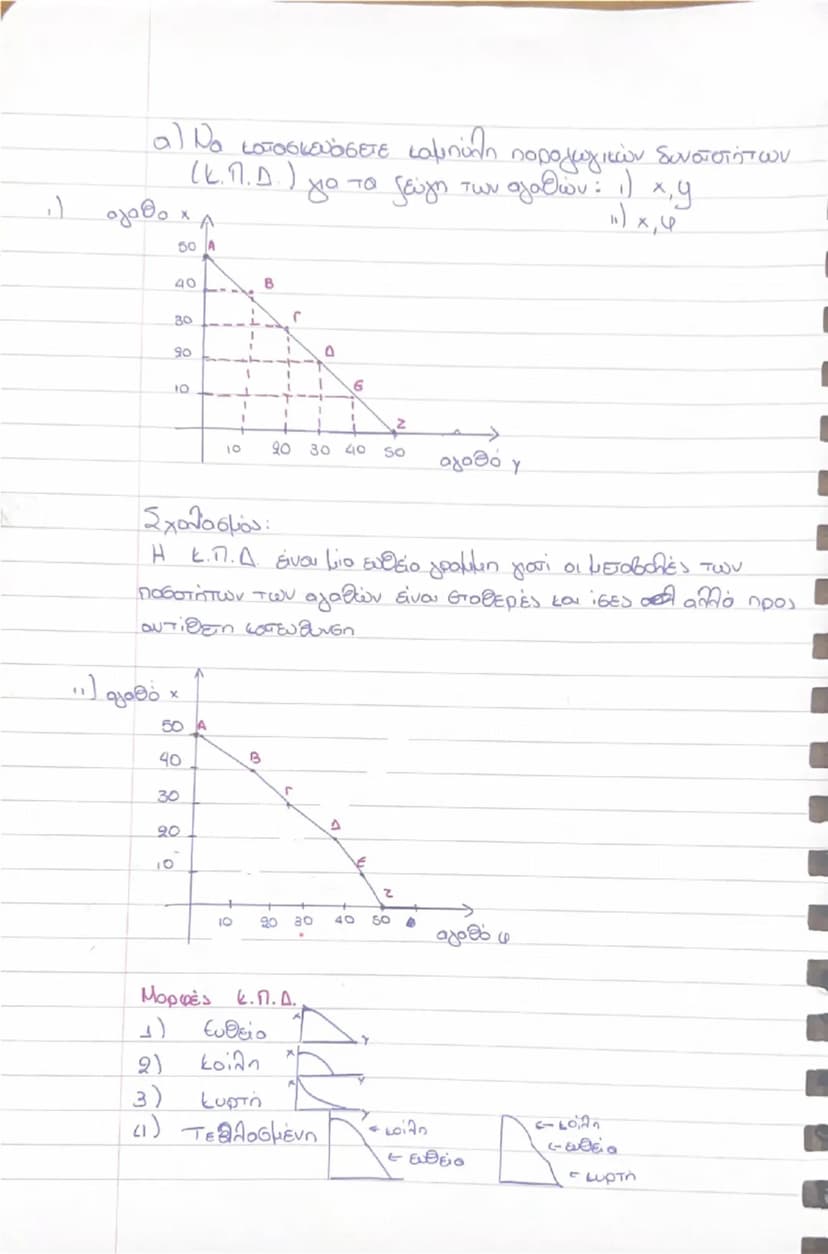 α) Να κατασκευάσετε καμπύλη παραγωγικών δυνατοτήτων
(Κ.Π.Δ.) για τα ζεύγη των αγαθών: i) x, y
ii) x, φ
i) αγαθο x
50 A
40 B
30 Γ
20 Δ
10 Ε
Ζ
10 20 30 40 50
αγαθό y
Σχολασμός:
Η Κ.Π.Δ. είναι μια ευθεία γραμμη γιατί οι μεταβολές των
ποσοτήτων των αγαθών είναι σταθερές και ίσες αλλά προς
αντίθετη κατευθυνση
ii) αγαθό x
50 A
40 B
30 Γ
20 Δ
10 Ε
Ζ
10 20 30 40 50
αγαθό φ
Μορφές Κ.Π.Δ.
1) Ευθεία x y
2) Κοίλη x y
3) Κυρτή x y
4) Τεθλασμένη ← κοίλη ← κοίλη
← ευθεία ← ευθεία
← κυρτή